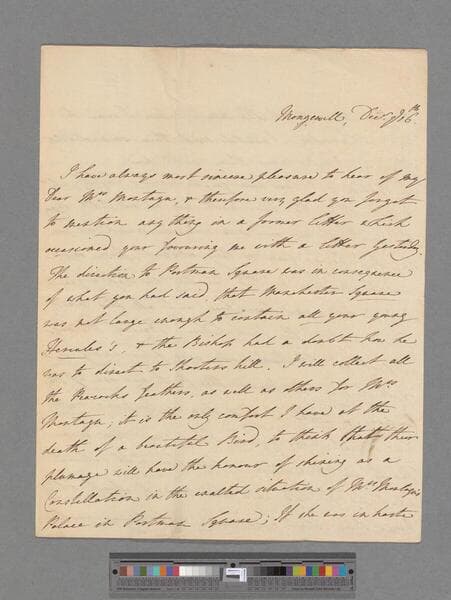 Mongewell, Decr. 16th.
I have always most sincere pleasure to hear of my
Dear Mrs. Montagu, & therefore very glad you forgot
to mention any thing in a former letter which
occasioned your favouring me with a letter yesterday.
The direction to Portman Square was in consequence
of what you had said, that Manchester Square
was not large enough to contain all your young
Hercules's, & the Bishop had a doubt how he
was to direct to Shooters hill. I will collect all
the Peacocks feathers, as well as others for Mrs.
Montagu; it is the only comfort I have at the
death of a beautiful Bird, to think that their
plumage will have the honour of shining as a
Constellation in the exalted situation of Mrs. Montagu's
Palace in Portman Square; If she was in haste